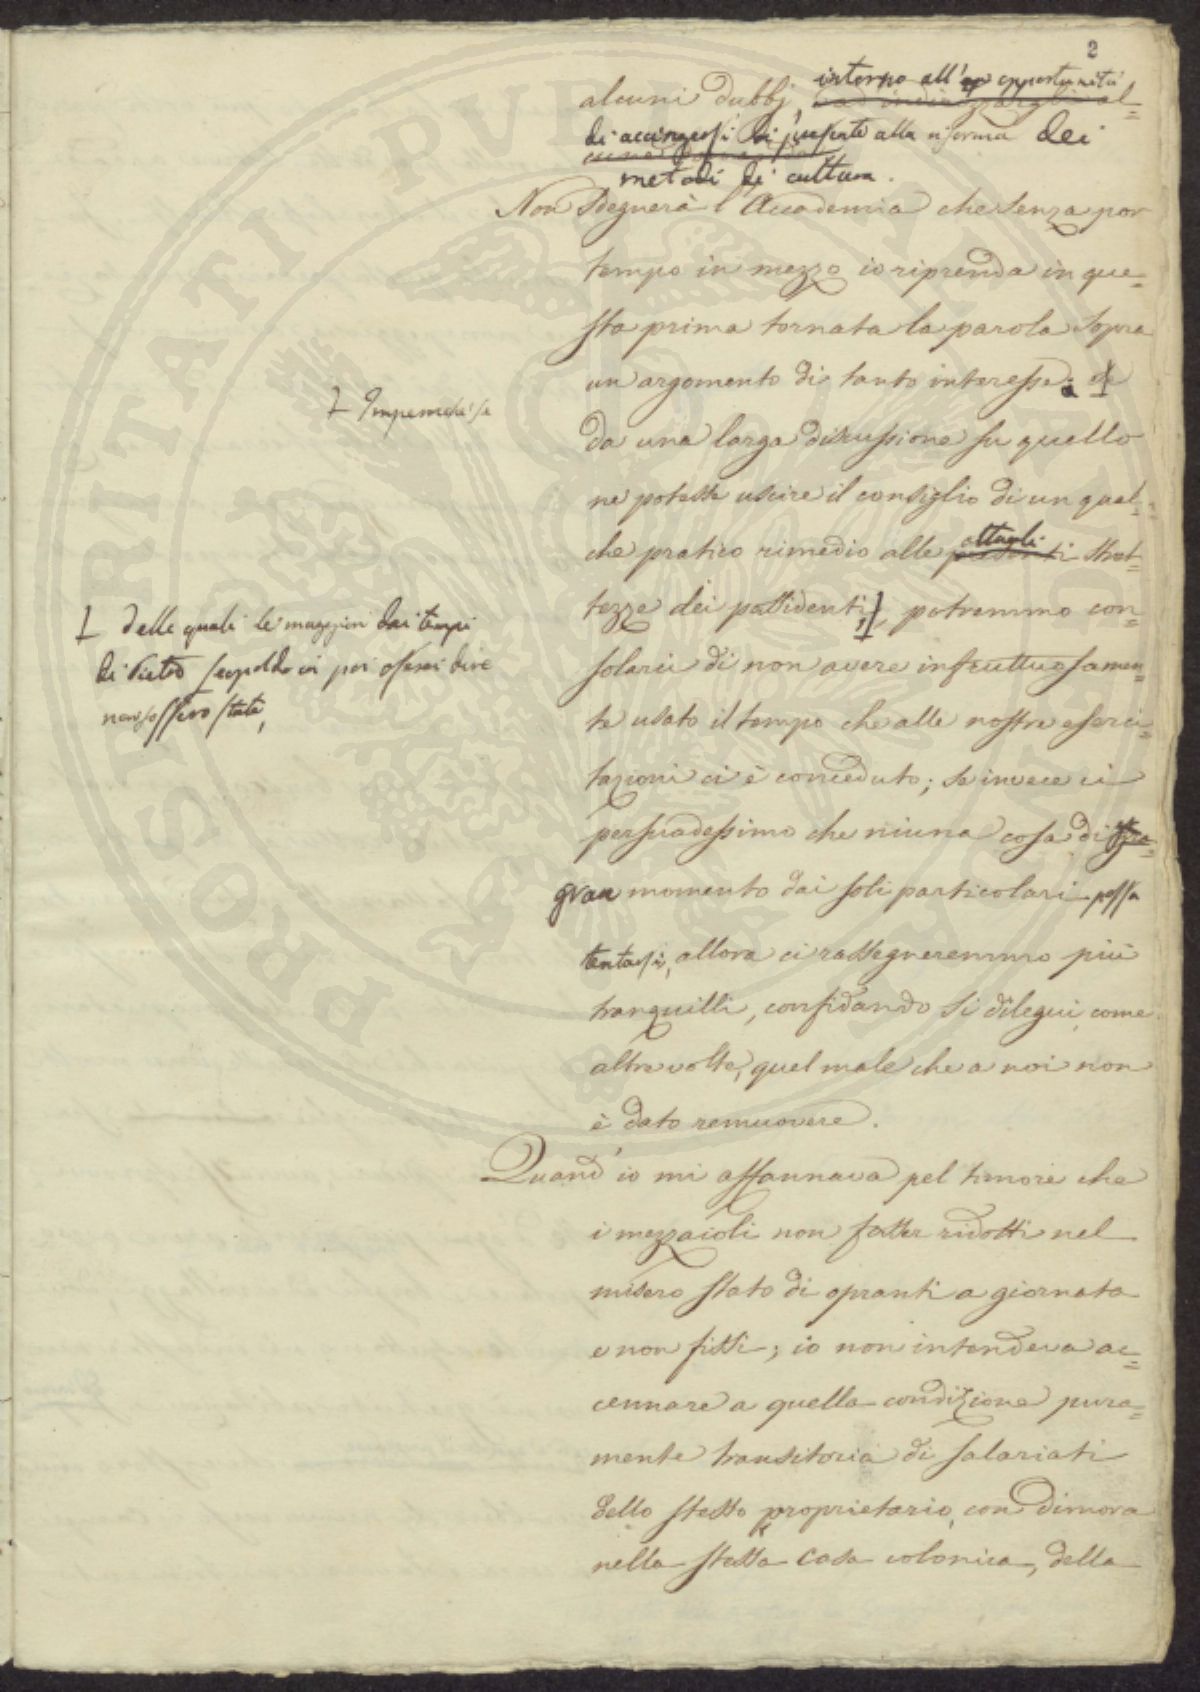 2
intorno all' opportunità
alcuni dubbj, al=
di accingersi di presente alla riforma dei
metodi di cultura.
Non Sdegnerà l'Accademia che senza por
tempo in mezzo io riprenda in que=
sta prima tornata la parola sopra
un argomento di tanto interesse:
da una larga discussione su quello
ne potesse uscire il consiglio di un qual=
che pratico rimedio alle attuali stret=
tezze dei possidenti, potremmo con=
delle quali le maggiori dai tempi
di Pietro Leopoldo in poi oserei dire
non ci fossero state,
solarci di non avere infruttuosamen=
te usato il tempo che alle nostre eserci=
tazioni ci è conceduto; se invece ci
persuadessimo che niuna cosa di
gran momento dai soli particolari possa
tentarsi, allora ci rassegneremmo più
tranquilli, confidando si dilegui, come
altre volte, quel male che a noi non
è dato remuovere.
Quand' io mi affannava pel timore che
i mezzaioli non fosser ridotti nel
misero stato di opranti a giornata
e non fissi; io non intendeva ac=
cennare a quella condizione pura=
mente transitoria di salariati
dello stesso proprietario, con dimora
nella stessa casa colonica, della
PROSPERITATI PUBLICAE AUGENDAE